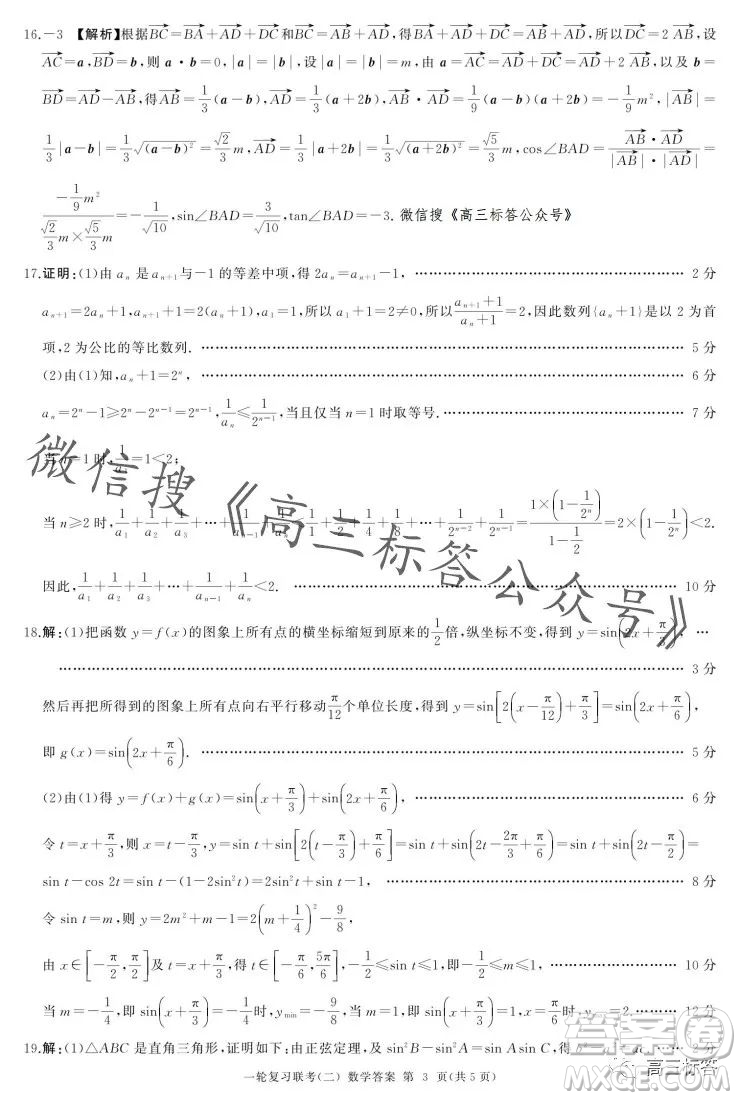 16.-3 【解析】根据$\overrightarrow{BC}=\overrightarrow{BA}+\overrightarrow{AD}+\overrightarrow{DC}$和$\overrightarrow{BC}=\overrightarrow{AB}+\overrightarrow{AD}$,得$\overrightarrow{BA}+\overrightarrow{AD}+\overrightarrow{DC}=\overrightarrow{AB}+\overrightarrow{AD}$,所以$\overrightarrow{DC}=2\overrightarrow{AB}$,设
$\overrightarrow{AC}=a$,$\overrightarrow{BD}=b$,则$a\cdot b=0$,$|a|=|b|$,设$|a|=|b|=m$,由$a=\overrightarrow{AC}=\overrightarrow{AD}+\overrightarrow{DC}=\overrightarrow{AD}+2\overrightarrow{AB}$,以及$b=$
$\overrightarrow{BD}=\overrightarrow{AD}-\overrightarrow{AB}$,得$\overrightarrow{AB}=\frac{1}{3}(a-b)$,$\overrightarrow{AD}=\frac{1}{3}(a+2b)$,$\overrightarrow{AB}\cdot\overrightarrow{AD}=\frac{1}{9}(a-b)(a+2b)=-\frac{1}{9}m^2$,$|\overrightarrow{AB}|=$
$\frac{1}{3}|a-b|=\frac{1}{3}\sqrt{(a-b)^2}=\frac{\sqrt{2}}{3}m$,$\overrightarrow{AD}=\frac{1}{3}|a+2b|=\frac{1}{3}\sqrt{(a+2b)^2}=\frac{\sqrt{5}}{3}m$,$\cos\angle BAD=\frac{\overrightarrow{AB}\cdot\overrightarrow{AD}}{|\overrightarrow{AB}|\cdot|\overrightarrow{AD}|}=$
$\frac{-\frac{1}{9}m^2}{\frac{\sqrt{2}}{3}m\times\frac{\sqrt{5}}{3}m}=-\frac{1}{\sqrt{10}}$,$\sin\angle BAD=\frac{3}{\sqrt{10}}$,$\tan\angle BAD=-3$. 微信搜《高三标答公众号》
17.证明:(1)由$a_n$是$a_{n+1}$与-1的等差中项,得$2a_n=a_{n+1}-1$, ……… 2分
$a_{n+1}=2a_n+1$,$a_{n+1}+1=2(a_n+1)$,$a_1=1$,所以$a_1+1=2\neq0$,所以$\frac{a_{n+1}+1}{a_n+1}=2$,因此数列$\{a_n+1\}$是以2为首
项,2为公比的等比数列. ……… 5分
(2)由(1)知,$a_n+1=2^n$, ……… 6分
$a_n=2^n-1\geq2^n-2^{n-1}=2^{n-1}$,$\frac{1}{a_n}\leq\frac{1}{2^{n-1}}$,当且仅当$n=1$时取等号. ……… 7分
当$n=1$时,$\frac{1}{a_1}=1<2$;
当$n\geq2$时,$\frac{1}{a_1}+\frac{1}{a_2}+\frac{1}{a_3}+\cdots+\frac{1}{a_{n-1}}+\frac{1}{a_n}<\frac{1}{1}+\frac{1}{2}+\frac{1}{4}+\frac{1}{8}+\cdots+\frac{1}{2^{n-2}}+\frac{1}{2^{n-1}}=\frac{1\times\left(1-\frac{1}{2^n}\right)}{1-\frac{1}{2}}=2\times\left(1-\frac{1}{2^n}\right)<2$.
因此,$\frac{1}{a_1}+\frac{1}{a_2}+\frac{1}{a_3}+\cdots+\frac{1}{a_{n-1}}+\frac{1}{a_n}<2$. ……… 10分
微信搜《高三标答公众号》
18.解:(1)把函数$y=f(x)$的图象上所有点的横坐标缩短到原来的$\frac{1}{2}$倍,纵坐标不变,得到$y=\sin\left(2x+\frac{\pi}{3}\right)$, …
……… 3分
然后再把所得到的图象上所有点向右平行移动$\frac{\pi}{12}$个单位长度,得到$y=\sin\left[2\left(x-\frac{\pi}{12}\right)+\frac{\pi}{3}\right]=\sin\left(2x+\frac{\pi}{6}\right)$,
即$g(x)=\sin\left(2x+\frac{\pi}{6}\right)$. ……… 5分
(2)由(1)得$y=f(x)+g(x)=\sin\left(x+\frac{\pi}{3}\right)+\sin\left(2x+\frac{\pi}{6}\right)$, ……… 6分
令$t=x+\frac{\pi}{3}$,则$x=t-\frac{\pi}{3}$,$y=\sin t+\sin\left[2\left(t-\frac{\pi}{3}\right)+\frac{\pi}{6}\right]=\sin t+\sin\left(2t-\frac{2\pi}{3}+\frac{\pi}{6}\right)=\sin t+\sin\left(2t-\frac{\pi}{2}\right)=$
$\sin t-\cos 2t=\sin t-(1-2\sin^2t)=2\sin^2t+\sin t-1$, ……… 8分
令$\sin t=m$,则$y=2m^2+m-1=2\left(m+\frac{1}{4}\right)^2-\frac{9}{8}$,
由$x\in\left[-\frac{\pi}{2},\frac{\pi}{2}\right]$及$t=x+\frac{\pi}{3}$,得$t\in\left[-\frac{\pi}{6},\frac{5\pi}{6}\right]$,$-\frac{1}{2}\leq\sin t\leq1$,即$-\frac{1}{2}\leq m\leq1$, ……… 10分
当$m=-\frac{1}{4}$,即$\sin\left(x+\frac{\pi}{3}\right)=-\frac{1}{4}$时,$y_{\min}=-\frac{9}{8}$,当$m=1$,即$\sin\left(x+\frac{\pi}{3}\right)=1$时, ……… 12分
19.解:(1)△ABC是直角三角形,证明如下:由正弦定理,及$\sin^2B-\sin^2C=\sin A\sin C$
一轮复习联考(二) 数学答案 第 3 页(共5页)
答案圈
高三标答